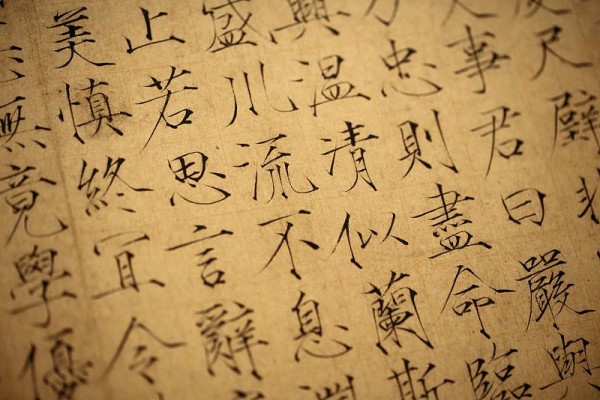 尺璧
事君曰嚴與
忠則盡命臨
興温清似蘭斯
盛川流不息
止若思言辭
美慎終宜令
無竟學優